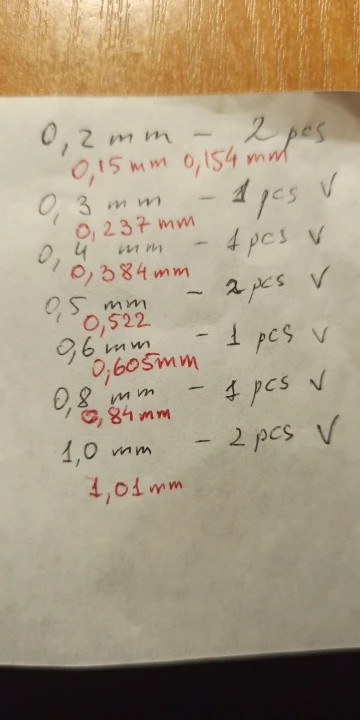 0,2 mm - 2 pcs
0,15 mm 0,154 mm
0,3 mm - 1 pcs V
0,237 mm
0,4 mm - 1 pcs V
0,384 mm
0,5 mm - 2 pcs V
0,522
0,6 mm - 1 pcs V
0,605mm
0,8 mm - 1 pcs V
0,84 mm
1,0 mm - 2 pcs V
1,01 mm